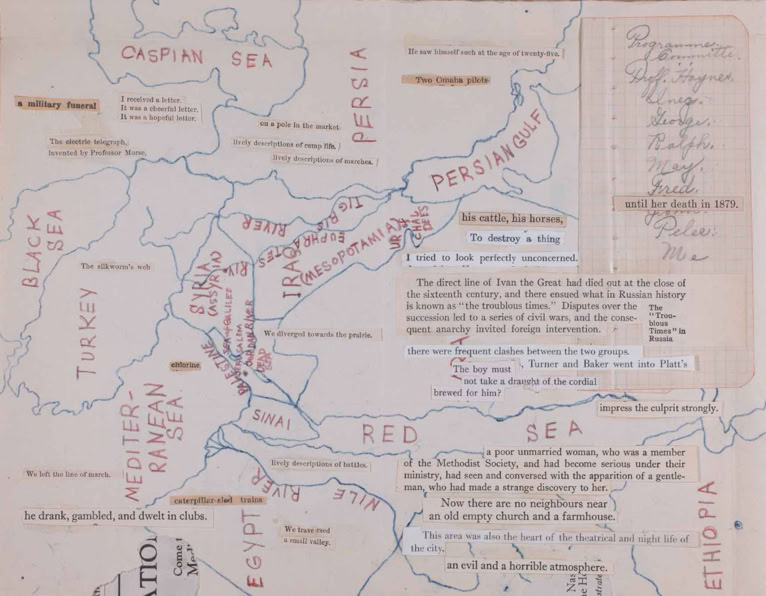 CASPIAN SEA
PERSIA
He saw himself such at the age of twenty-five.
Two Omaha pilots
a military funeral
I received a letter.
It was a cheerful letter.
It was a hopeful letter.
on a pole in the market
The electric telegraph,
invented by Professor Morse.
lively descriptions of camp life.
lively descriptions of marches.
PERSIAN GULF
Programme
Committee.
Proff. Haynes.
Inez.
George.
Ralph.
May.
Fred.
until her death in 1879.
Me
BLACK
SEA
TURKEY
The silkworm's web
TIGRIS
RIVER
EUPHRATES
RIV
IRAQ
(MESOPOTAMIA)
UR OF
CHAL
DEES
SYRIA
(ASSYRIA)
SEA OF GALILEE
JERUSALEM
JORDAN RIVER
DEAD
SEA
his cattle, his horses,
To destroy a thing
I tried to look perfectly unconcerned.
The direct line of Ivan the Great had died out at the close of
the sixteenth century, and there ensued what in Russian history
is known as "the troublous times." Disputes over the
succession led to a series of civil wars, and the conse-
quent anarchy invited foreign intervention.
The
"Trou-
blous
Times" in
Russia
We diverged towards the prairie.
there were frequent clashes between the two groups.
The boy must
, Turner and Baker went into Platt's
not take a draught of the cordial
brewed for him?
chlorine
impress the culprit strongly.
MEDITER-
RANEAN
SEA
SINAI
RED SEA
lively descriptions of battles.
a poor unmarried woman, who was a member
of the Methodist Society, and had become serious under their
ministry, had seen and conversed with the apparition of a gentle-
man, who had made a strange discovery to her.
We left the line of march.
caterpillar-sled trains
NILE
RIVER
EGYPT
ETHIOPIA
he drank, gambled, and dwelt in clubs.
Now there are no neighbours near
an old empty church and a farmhouse.
We traversed
a small valley.
This area was also the heart of the theatrical and night life of
the city.
an evil and a horrible atmosphere.
Come